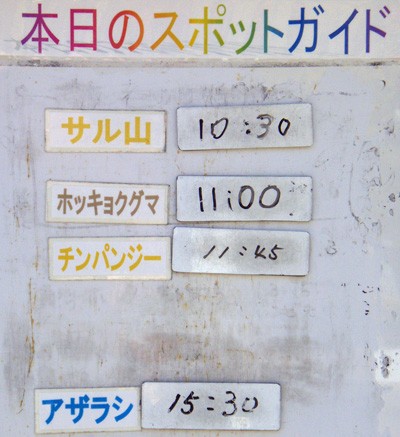 本日のスポットガイド
サル山 10:30
ホッキョクグマ 11:00
チンパンジー 11:45
アザラシ 15:30